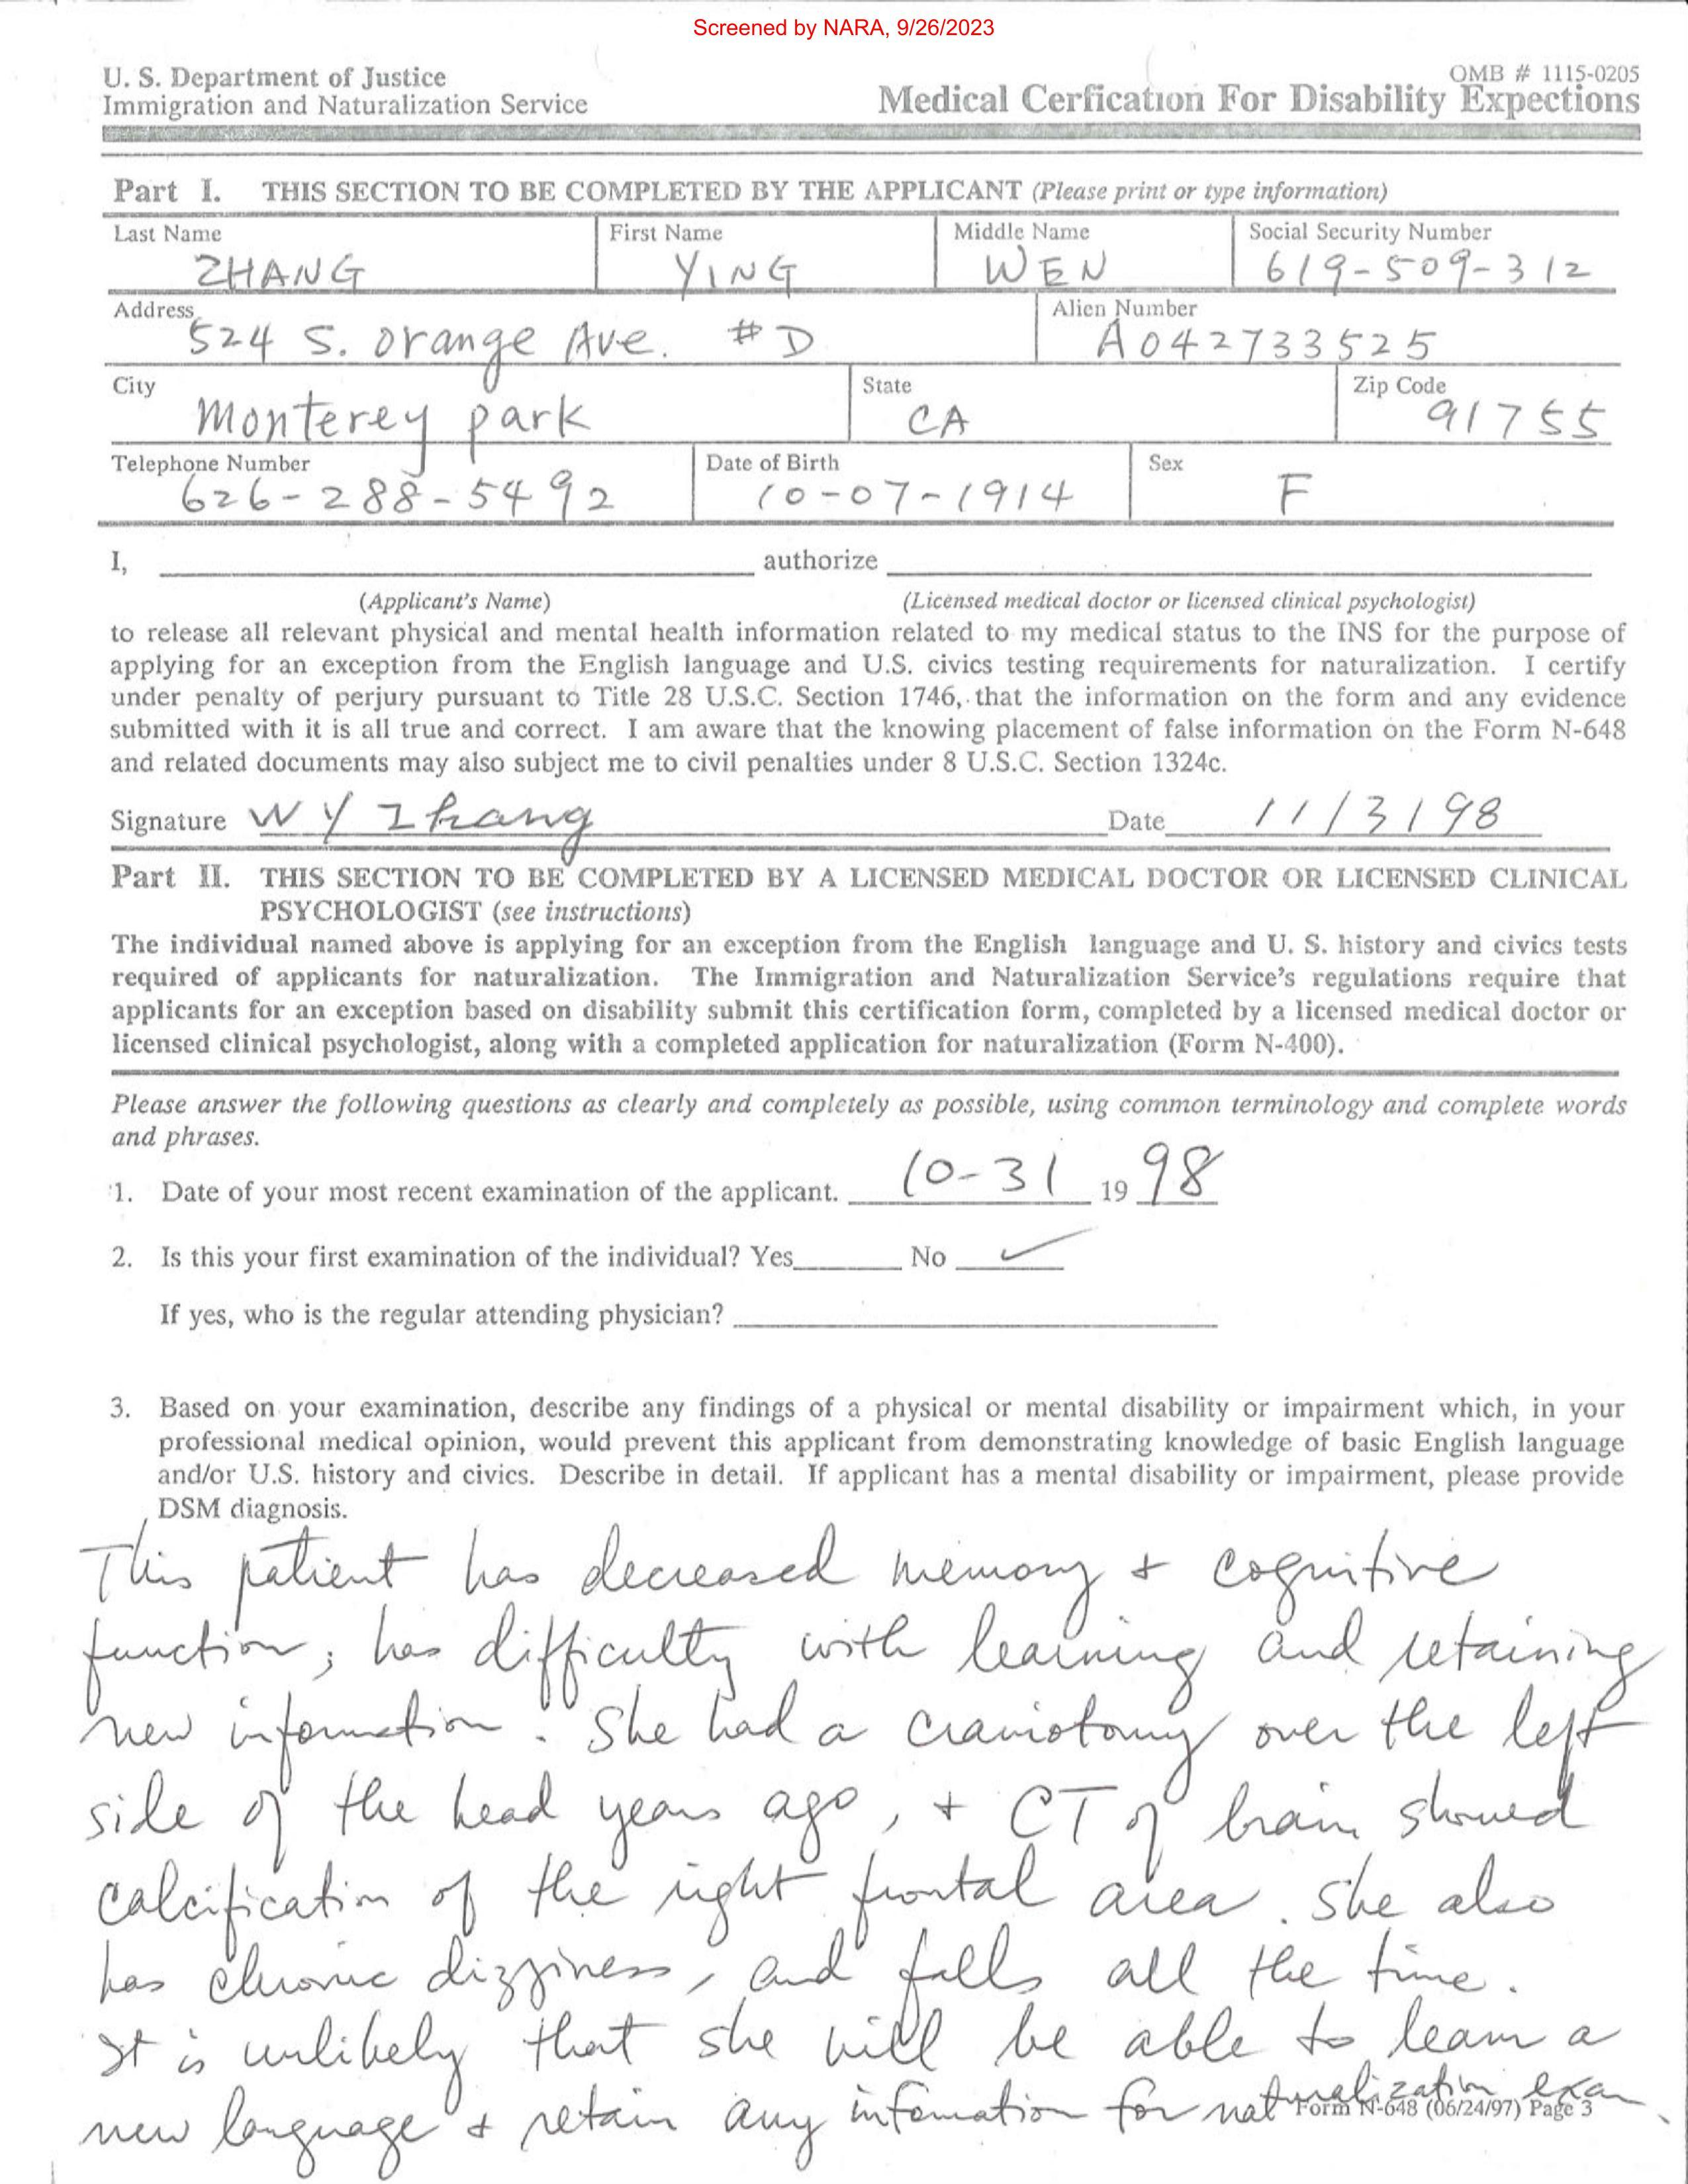 Screened by NARA, 9/26/2023
U. S. Department of Justice
Immigration and Naturalization Service
OMB # 1115-0205
Medical Cerfication For Disability Expections
Part I. THIS SECTION TO BE COMPLETED BY THE APPLICANT (Please print or type information)
Last Name First Name Middle Name Social Security Number
ZHANG YING WEN 619-509-312
Address Alien Number
524 S. orange Ave. #D A042733525
City State Zip Code
Monterey park CA 91755
Telephone Number Date of Birth Sex
626-288-5492 10-07-1914 F
I, authorize
(Applicant's Name) (Licensed medical doctor or licensed clinical psychologist)
to release all relevant physical and mental health information related to my medical status to the INS for the purpose of
applying for an exception from the English language and U.S. civics testing requirements for naturalization. I certify
under penalty of perjury pursuant to Title 28 U.S.C. Section 1746, that the information on the form and any evidence
submitted with it is all true and correct. I am aware that the knowing placement of false information on the Form N-648
and related documents may also subject me to civil penalties under 8 U.S.C. Section 1324c.
Signature W Y Zhang Date 11/3/98
Part II. THIS SECTION TO BE COMPLETED BY A LICENSED MEDICAL DOCTOR OR LICENSED CLINICAL
PSYCHOLOGIST (see instructions)
The individual named above is applying for an exception from the English language and U. S. history and civics tests
required of applicants for naturalization. The Immigration and Naturalization Service's regulations require that
applicants for an exception based on disability submit this certification form, completed by a licensed medical doctor or
licensed clinical psychologist, along with a completed application for naturalization (Form N-400).
Please answer the following questions as clearly and completely as possible, using common terminology and complete words
and phrases.
1. Date of your most recent examination of the applicant. 10-31 19 98
2. Is this your first examination of the individual? Yes No ✓
If yes, who is the regular attending physician?
3. Based on your examination, describe any findings of a physical or mental disability or impairment which, in your
professional medical opinion, would prevent this applicant from demonstrating knowledge of basic English language
and/or U.S. history and civics. Describe in detail. If applicant has a mental disability or impairment, please provide
DSM diagnosis.
This patient has decreased memory + cognitive
function; has difficulty with learning and retaining
new information. She had a craniotomy over the left
side of the head years ago, + CT of brain showed
calcification of the right frontal area. She also
has chronic dizziness, and falls all the time.
It is unlikely that she will be able to learn a
new language + retain any infomation for naturalization exam.
Form N-648 (06/24/97) Page 3